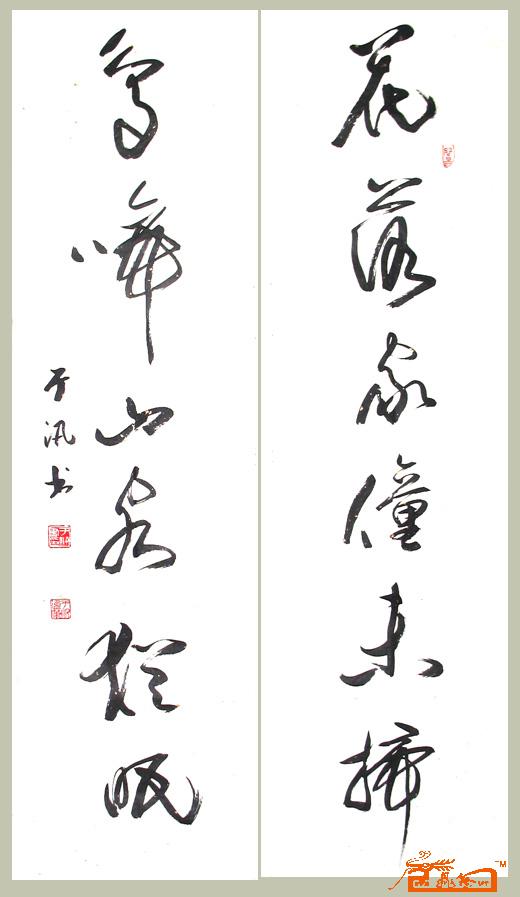 花落家僮未掃
鳥啼山客猶眠